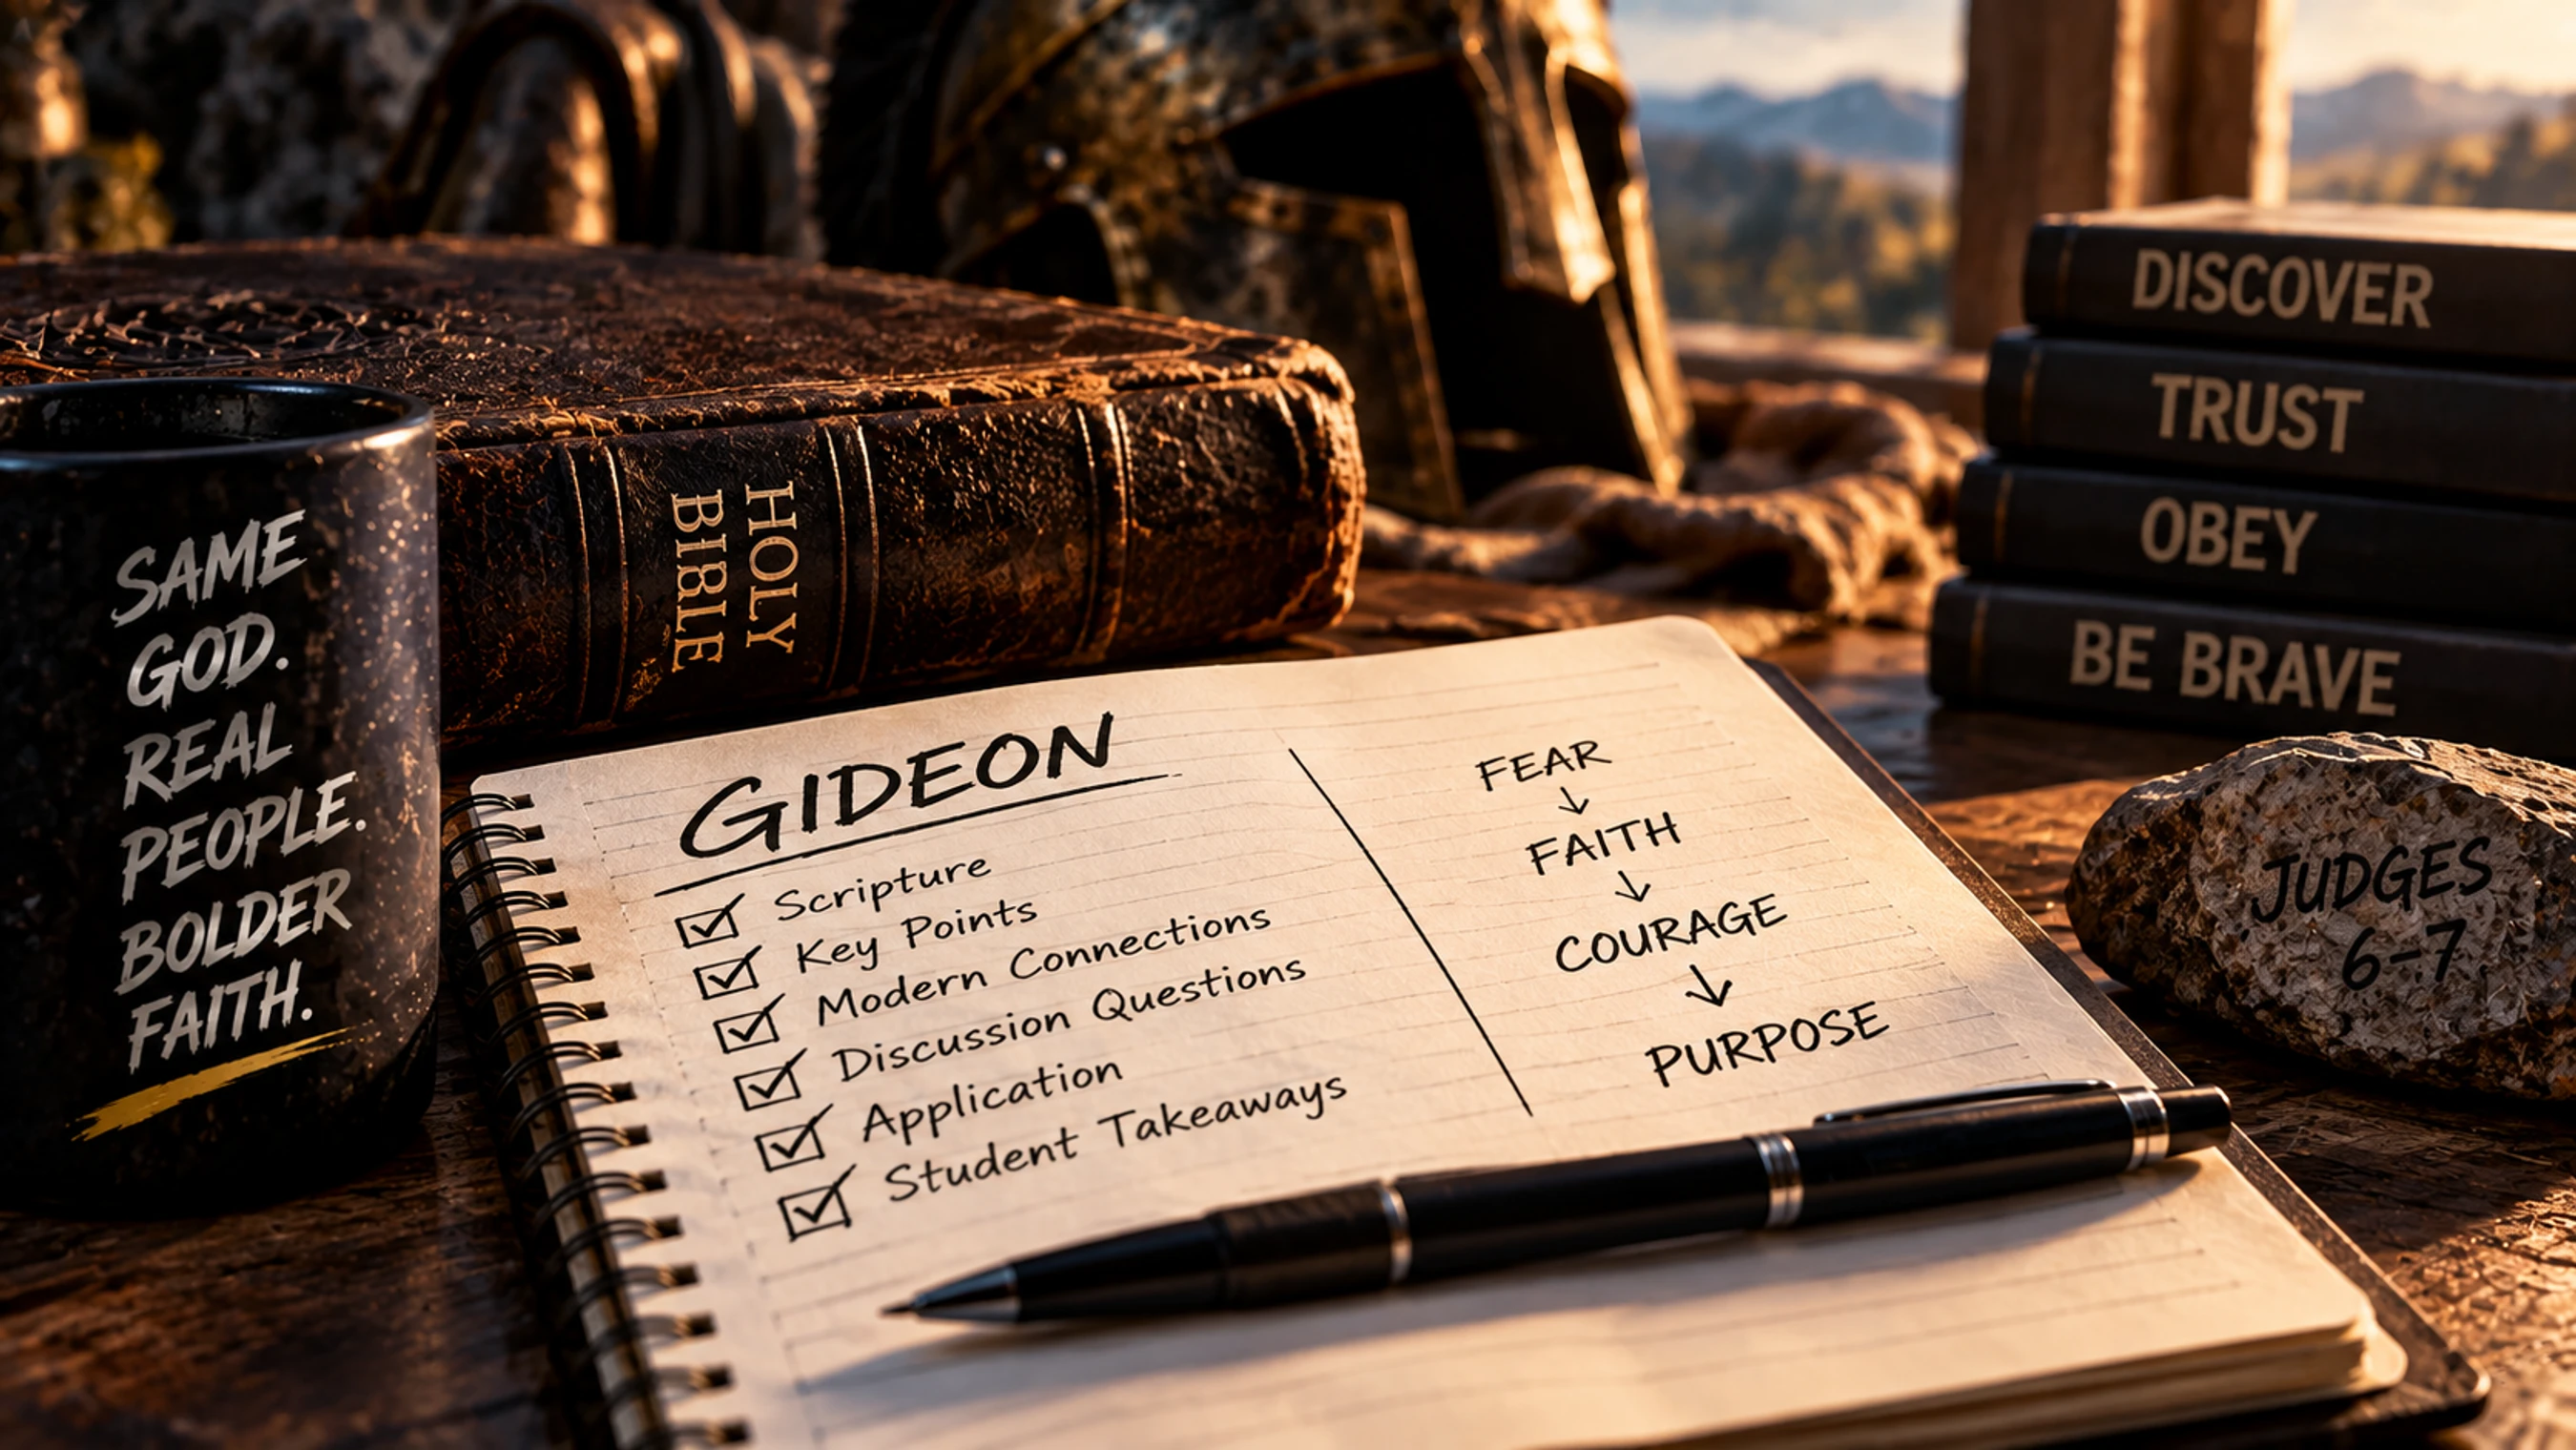 SAME
GOD.
REAL
PEOPLE.
BOLDER
FAITH.
HOLY
BIBLE
GIDEON
Scripture
Key Points
Modern Connections
Discussion Questions
Application
Student Takeaways
FEAR
↓
FAITH
↓
COURAGE
↓
PURPOSE
DISCOVER
TRUST
OBEY
BE BRAVE
JUDGES
6-7